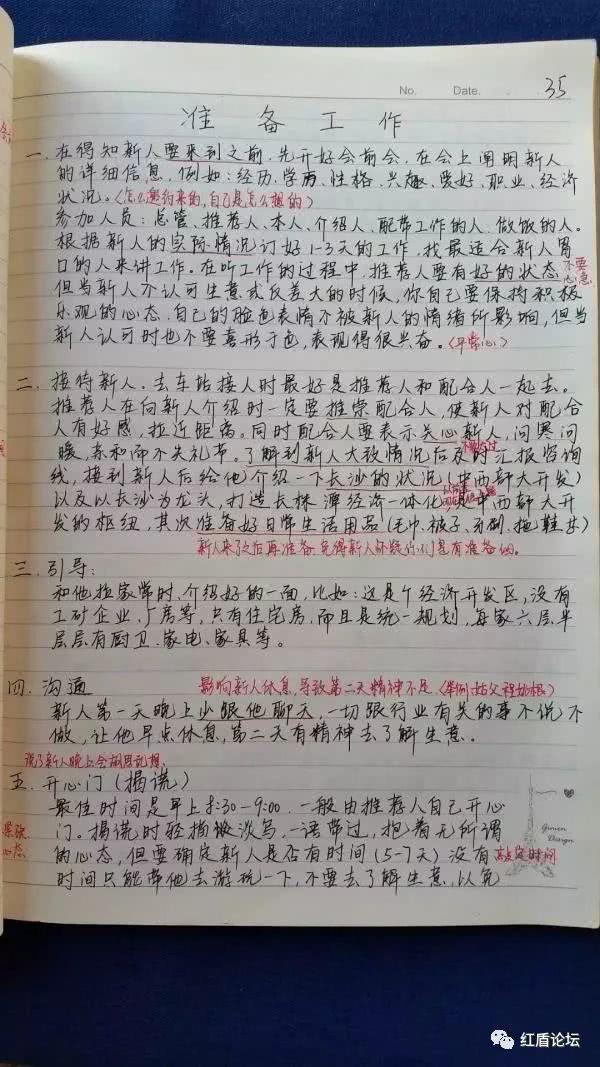 No. Date. 35
准备工作
一、在得知新人要来到之前,先开好会前会,在会上阐明新人
的详细信息,例如:经历、学历、性格、兴趣、爱好、职业、经济
状况。(怎么邀约来的,自己是怎么想的)
参加人员:总管、推荐人、本人、介绍人、配带工作的人、做饭的人。
根据新人的实际情况订好1-3天的工作,找最适合新人胃
口的人来讲工作。在听工作的过程中,推荐人要有好的状态 不要心急
但当新人不认可生意或反差大的时候,你自己要保持积极
乐观的心态,自己的脸色表情不被新人的情绪所影响,但当
新人认可时也不要喜形于色,表现得很兴奋。(平常心)
二、接待新人,去车站接人时最好是推荐人和配合人一起去。
推荐人在向新人介绍时一定要推崇配合人,使新人对配合
人有好感,拉近距离。同时配合人要表示关心新人,问寒问
暖,亲和而不失礼节。了解到新人大致情况后及时汇报咨询
线,接到新人后给他介绍一下长沙的状况(中西部大开发)
以及以长沙为龙头,打造长株潭经济一体化是中西部大开
发的枢纽,其次准备好日常生活用品(毛巾、被子、牙刷、拖鞋等)
新人来了之后再准备,免得新人怀疑你们是有准备的。
三、引导:
和他拉家常时,介绍好的一面,比如:这是个经济开发区,没有
工矿企业、厂房等,只有住宅房,而且是统一规划,每家六层半
层层有厨卫、家电、家具等。
四、沟通 影响新人休息,导致第二天精神不足
新人第一天晚上少跟他聊天,一切跟行业有关的事不说不
做,让他早点休息,第二天有精神去了解生意。
说了新人晚上会胡思乱想、
五、开心门(揭谎)
最佳时间是早上8:30-9:00,一般由推荐人自己开心
门。揭谎时轻描淡写,一语带过,抱着无所谓
的心态,但要确定新人是否有时间(5-7天)没有
时间只能带他去游玩一下,不要去了解生意,以免
Gimen
Design
红盾论坛